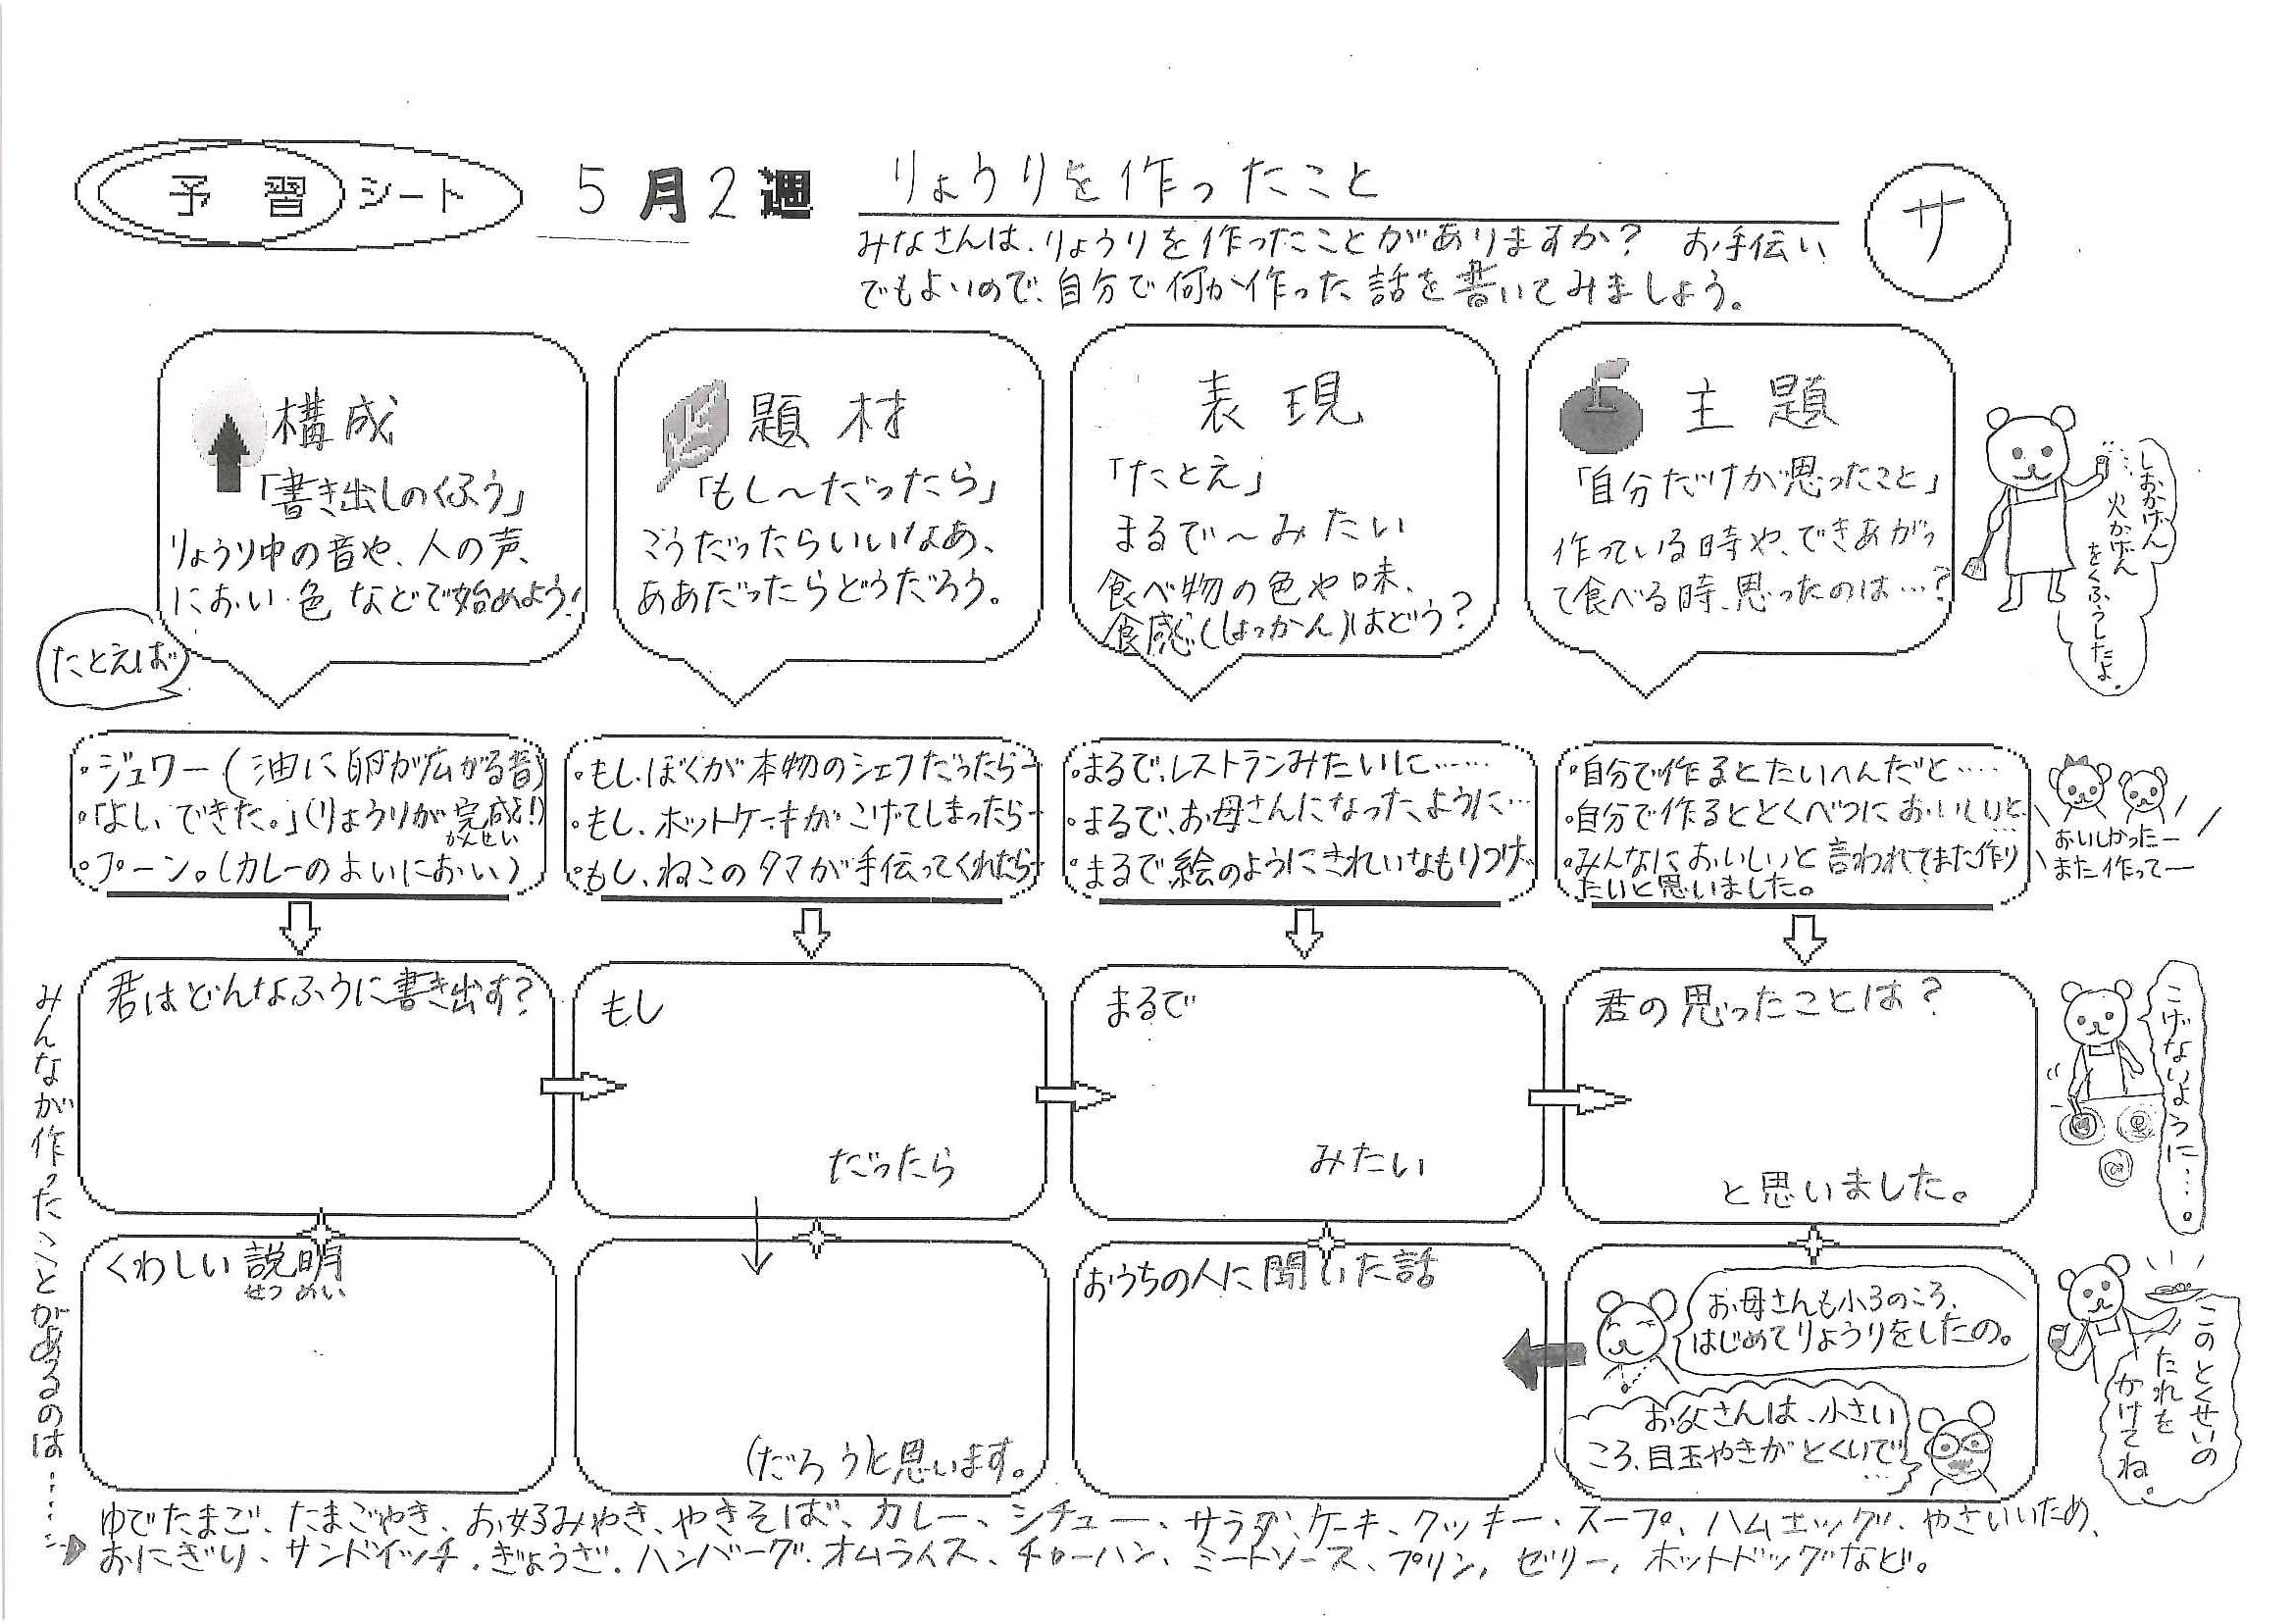 予習シート
5月2週
りょうりを作ったこと
サ
みなさんは、りょうりを作ったことがありますか? お手伝い
でもよいので、自分で何か作った話を書いてみましょう。
構成
「書き出しのくふう」
りょうり中の音や、人の声、
におい・色 などで始めよう!
題材
「もし〜だったら」
こうだったらいいなあ、
ああだったらどうだろう。
表現
「たとえ」
まるで〜みたい
食べ物の色や味、
食感(しょっかん)はどう?
主題
「自分だけが思ったこと」
作っている時や、できあがっ
て食べる時、思ったのは…?
しおかげん
火かげん
をくふうしたよ。
たとえば
・ジュワー(油に卵が広がる音)
・「よし、できた。」(りょうりが完成!)
かんせい
・プーン。(カレーのよいにおい)
・もし、ぼくが本物のシェフだったらー
・もし、ホットケーキがこげてしまったらー
・もし、ねこのタマが手伝ってくれたらー
・まるで、レストランみたいに……
・まるで、お母さんになったように…
・まるで絵のようにきれいなもりつけ
・自分で作るとたいへんだと…・
・自分で作るととくべつにおいしいと…
・みんなにおいしいと言われてまた作り
たいと思いました。
おいしかったー
また作ってー
君はどんなふうに書き出す?
もし
だったら
まるで
みたい
君の思ったことは?
と思いました。
こげないように…。
くわしい説明
せつめい
(だろう)と思います。
おうちの人に聞いた話
お母さんも小3のころ、
はじめてりょうりをしたの。
お父さんは、小さい
ころ、目玉やきがとくいで
…
このとくせいの
たれを
かけてね。
みんなが作ったことがあるのは……
ゆでたまご、たまごやき、お好みやき、やきそば、カレー、シチュー、サラダ、ケーキ、クッキー、スープ、ハムエッグ、やさいいため、
おにぎり、サンドイッチ、ぎょうざ、ハンバーグ、オムライス、チャーハン、ミートソース、プリン、ゼリー、ホットドッグなど。